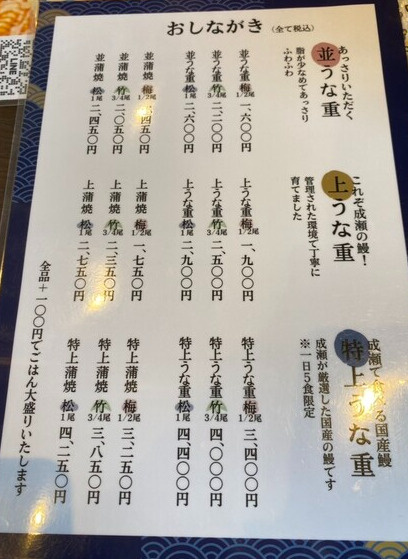 おしながき（全て税込）
あっさりいただく
並うな重
脂が少なめであっさり
ふわふわ
並うな重 梅 1/2尾 一、六〇〇円
並うな重 竹 3/4尾 二、二〇〇円
並うな重 松 1尾 二、六〇〇円
並蒲焼 梅 1/2尾 一、四五〇円
並蒲焼 竹 3/4尾 二、〇五〇円
並蒲焼 松 1尾 二、四五〇円
これぞ成瀬の鰻！
上うな重
管理された環境で丁寧に
育てました
上うな重 梅 1/2尾 一、九〇〇円
上うな重 竹 3/4尾 二、五〇〇円
上うな重 松 1尾 二、九〇〇円
上蒲焼 梅 1/2尾 一、七五〇円
上蒲焼 竹 3/4尾 二、三五〇円
上蒲焼 松 1尾 二、七五〇円
成瀬で食べる国産鰻
特上うな重
成瀬が厳選した国産の鰻です
※一日5食限定
特上うな重 梅 1/2尾 三、四〇〇円
特上うな重 竹 3/4尾 四、〇〇〇円
特上うな重 松 1尾 四、四〇〇円
特上蒲焼 梅 1/2尾 三、二五〇円
特上蒲焼 竹 3/4尾 三、八五〇円
特上蒲焼 松 1尾 四、二五〇円
全品＋一〇〇円でごはん大盛りいたします
LINE